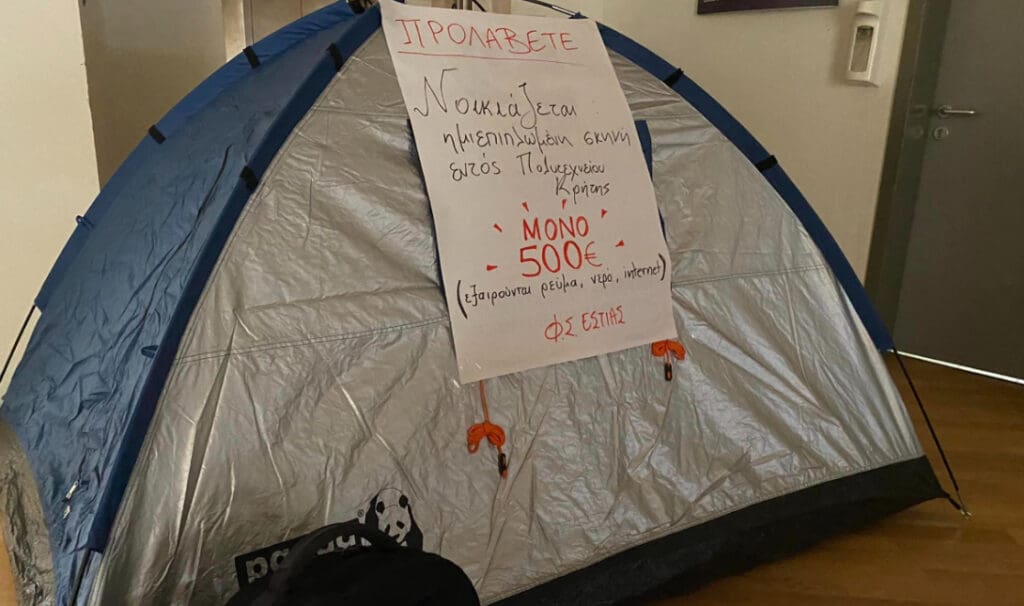 ΠΡΟΛΑΒΕΤΕ
Νοικιάζεται
ημιεπιπλωμένη σκηνή
εντός Πολυτεχνείου
Κρήτης
ΜΟΝΟ
500€
(εξαιρούνται ρεύμα, νερό, internet)
Φ.Σ ΕΣΤΙΑΣ